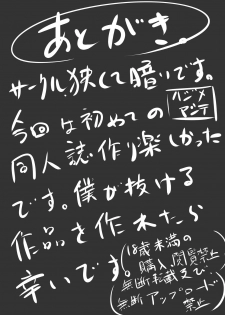 あとがき。
サークル狭くて暗いです。
今回は初めての
ハジメ
マシテ
同人誌作り楽しかった
です。僕が抜ける
作品を作れたら
幸いです。
(18歳未満の
購入、閲覧禁止
無断転載及び
無断アップロード
禁止)